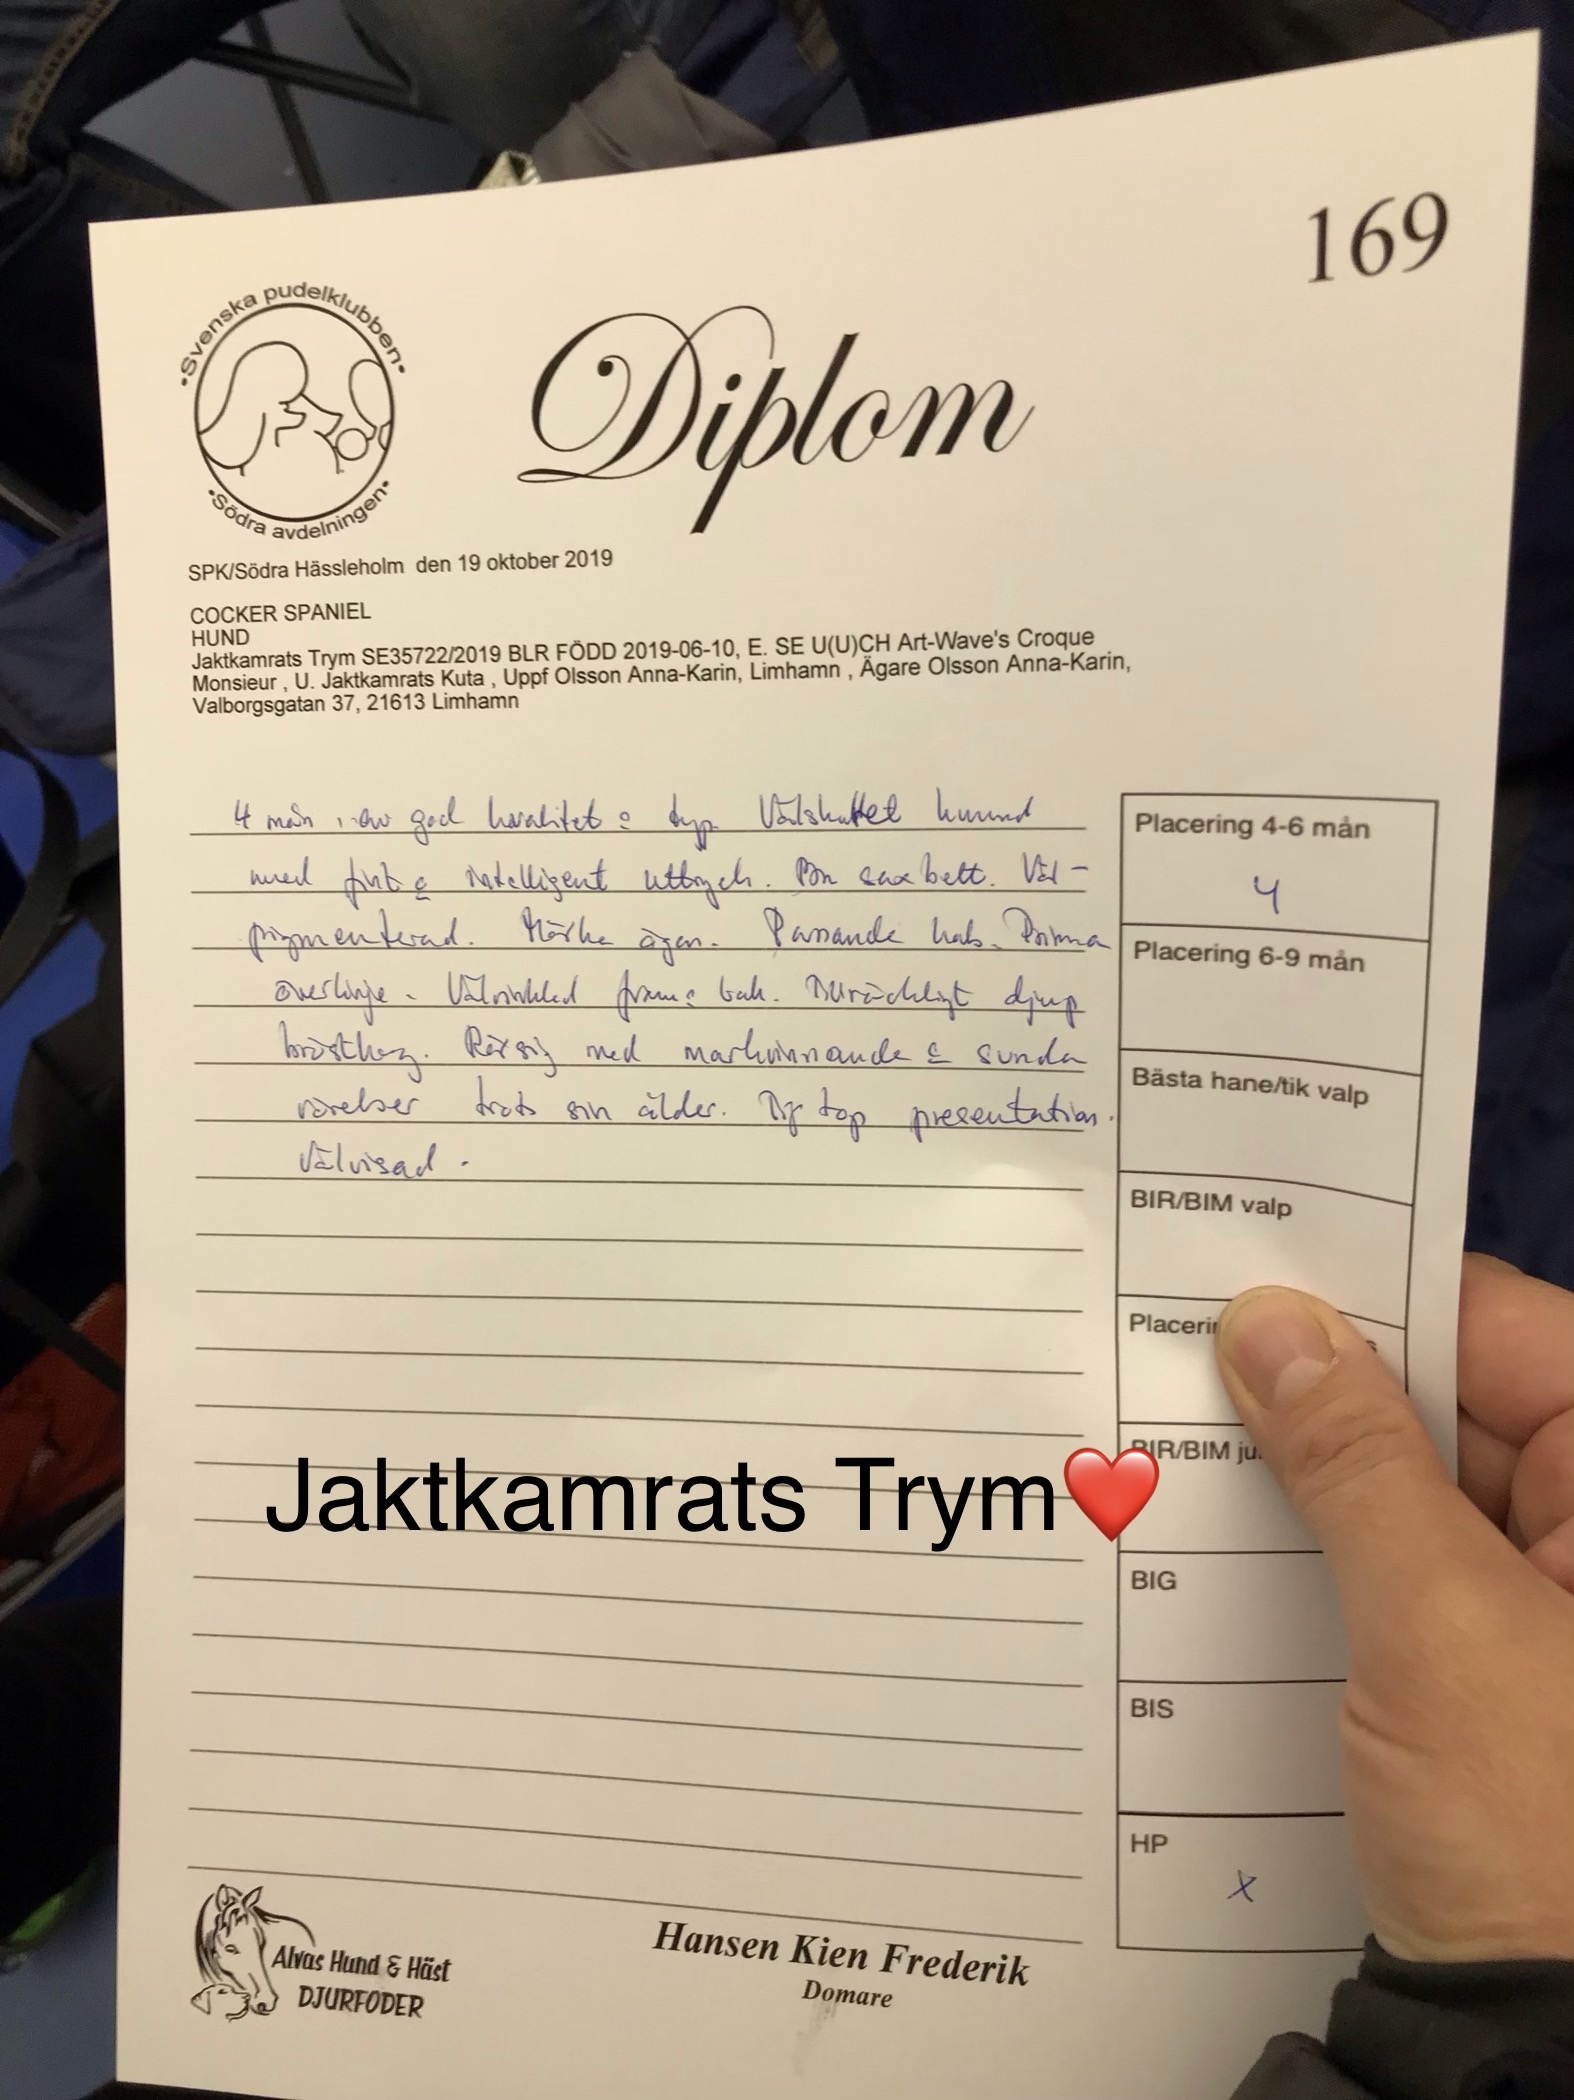 169
Svenska pudelklubben
Diplom
Södra avdelningen
SPK/Södra Hässleholm den 19 oktober 2019
COCKER SPANIEL
HUND
Jaktkamrats Trym SE35722/2019 BLR FÖDD 2019-06-10, E. SE U(U)CH Art-Wave's Croque
Monsieur , U. Jaktkamrats Kuta , Uppf Olsson Anna-Karin, Limhamn , Ägare Olsson Anna-Karin,
Valborgsgatan 37, 21613 Limhamn
4 mån av god kvalitet & typ Välskuret huvud
med fint & intelligent uttryck. Bra saxbett. Väl-
pigmenterad. Mörka ögon. Passande hals. Prima
överlinje. Välvinklad fram & bak. Tillräckligt djup
bröstkorg. Rör sig med markvinnande & sunda
rörelser trots sin ålder. Tip top presentation.
Välvisad.
Placering 4-6 mån
4
Placering 6-9 mån
Bästa hane/tik valp
BIR/BIM valp
BIR/BIM
Jaktkamrats Trym❤️
BIG
BIS
HP
x
Alvas Hund & Häst
DJURFODER
Hansen Kien Frederik
Domare